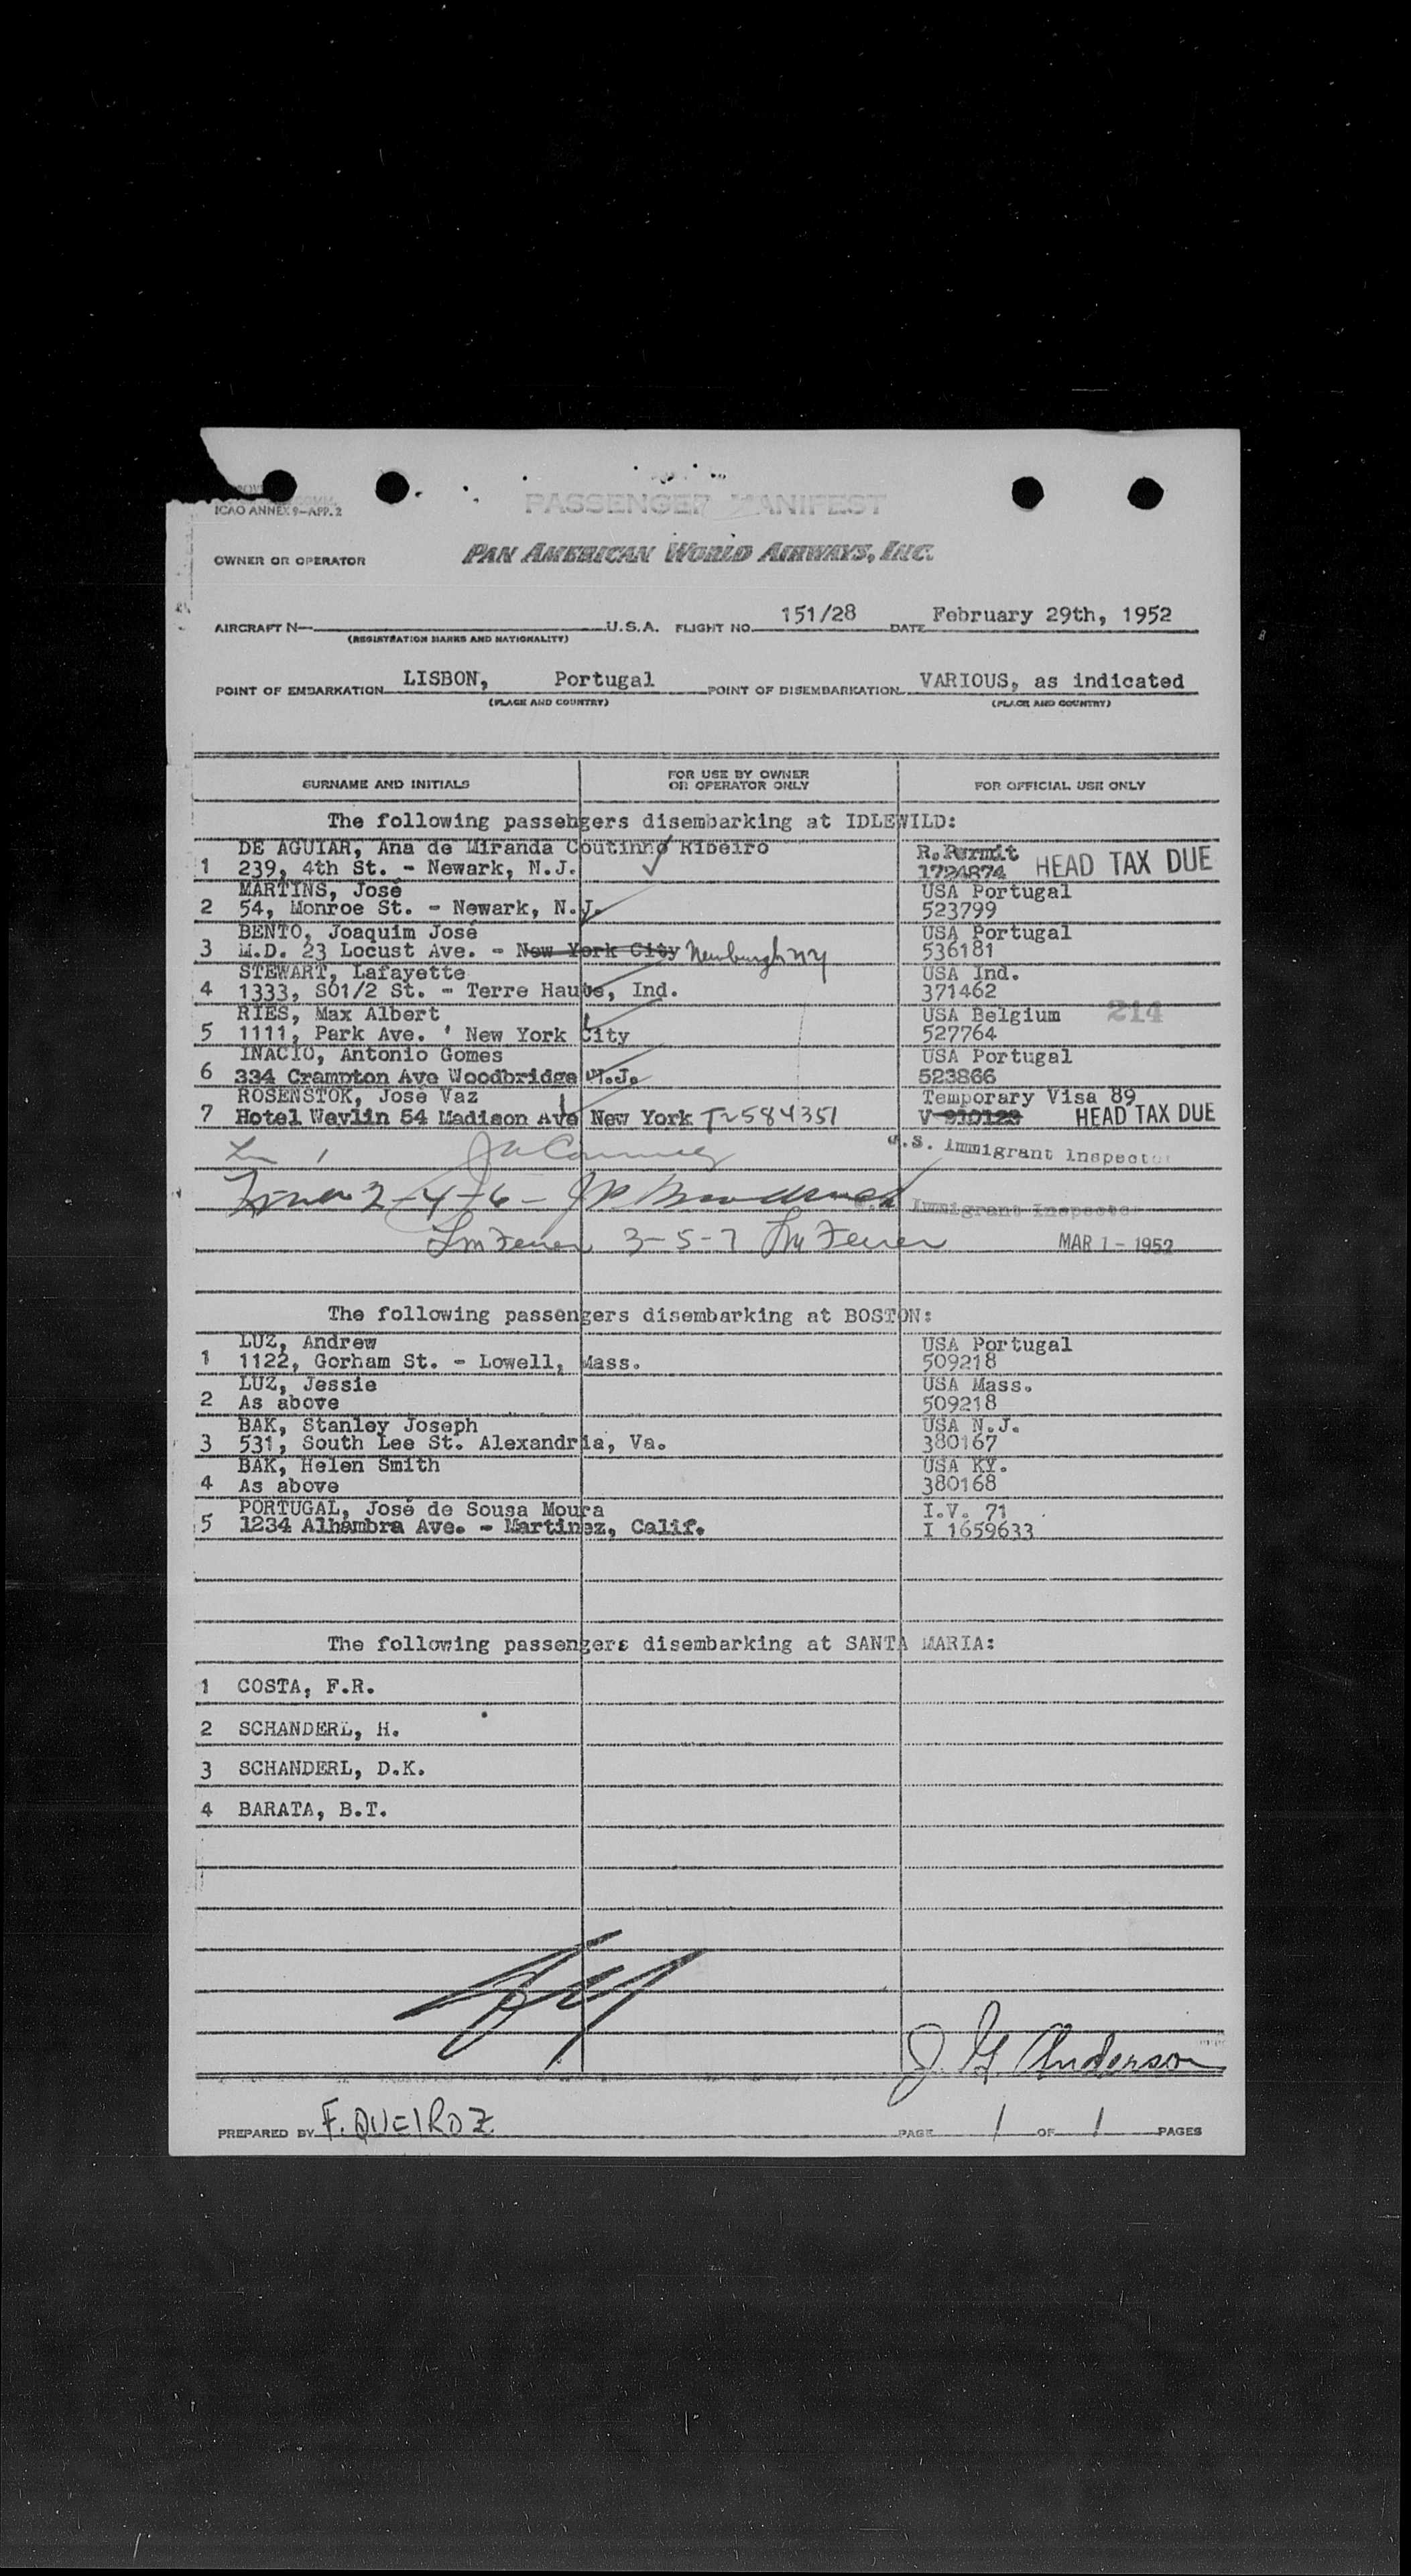 ICAO ANNEX 9-APP. 2
PASSENGER MANIFEST
OWNER OR OPERATOR PAN AMERICAN WORLD AIRWAYS, INC.
AIRCRAFT N— U.S.A. FLIGHT NO. 151/28 DATE February 29th, 1952
(REGISTRATION MARKS AND NATIONALITY)
POINT OF EMBARKATION LISBON, Portugal POINT OF DISEMBARKATION VARIOUS, as indicated
(PLACE AND COUNTRY) (PLACE AND COUNTRY)
SURNAME AND INITIALS FOR USE BY OWNER OR OPERATOR ONLY FOR OFFICIAL USE ONLY
The following passengers disembarking at IDLEWILD:
DE AGUIAR, Ana de Miranda Coutinho Ribeiro R. Permit
1 239, 4th St. - Newark, N.J. 1724874 HEAD TAX DUE
MARTINS, José USA Portugal
2 54, Monroe St. - Newark, N.J. 523799
BENTO, Joaquim José USA Portugal
3 M.D. 23 Locust Ave. - New York City Newburgh NY 536181
STEWART, Lafayette USA Ind.
4 1333, S01/2 St. - Terre Haute, Ind. 371462
RIES, Max Albert USA Belgium 214
5 1111, Park Ave. ' New York City 527764
INACIO, Antonio Gomes USA Portugal
6 334 Crampton Ave Woodbridge N.J. 523866
ROSENSTOK, José Vaz Temporary Visa 89
7 Hotel Weylin 54 Madison Ave New York T2584351 V 910123 HEAD TAX DUE
U.S. Immigrant Inspector
2-4-6- Immigrant Inspector
3-5-7 MAR 1 - 1952
The following passengers disembarking at BOSTON:
LUZ, Andrew USA Portugal
1 1122, Gorham St. - Lowell, Mass. 509218
LUZ, Jessie USA Mass.
2 As above 509218
BAK, Stanley Joseph USA N.J.
3 531, South Lee St. Alexandria, Va. 380167
BAK, Helen Smith USA KY.
4 As above 380168
PORTUGAL, José de Sousa Moura I.V. 71
5 1234 Alhambra Ave. - Martinez, Calif. I 1659633
The following passengers disembarking at SANTA MARIA:
1 COSTA, F.R.
2 SCHANDERL, H.
3 SCHANDERL, D.K.
4 BARATA, B.T.
J. G. Anderson
PREPARED BY F. QUEIROZ PAGE 1 OF 1 PAGES